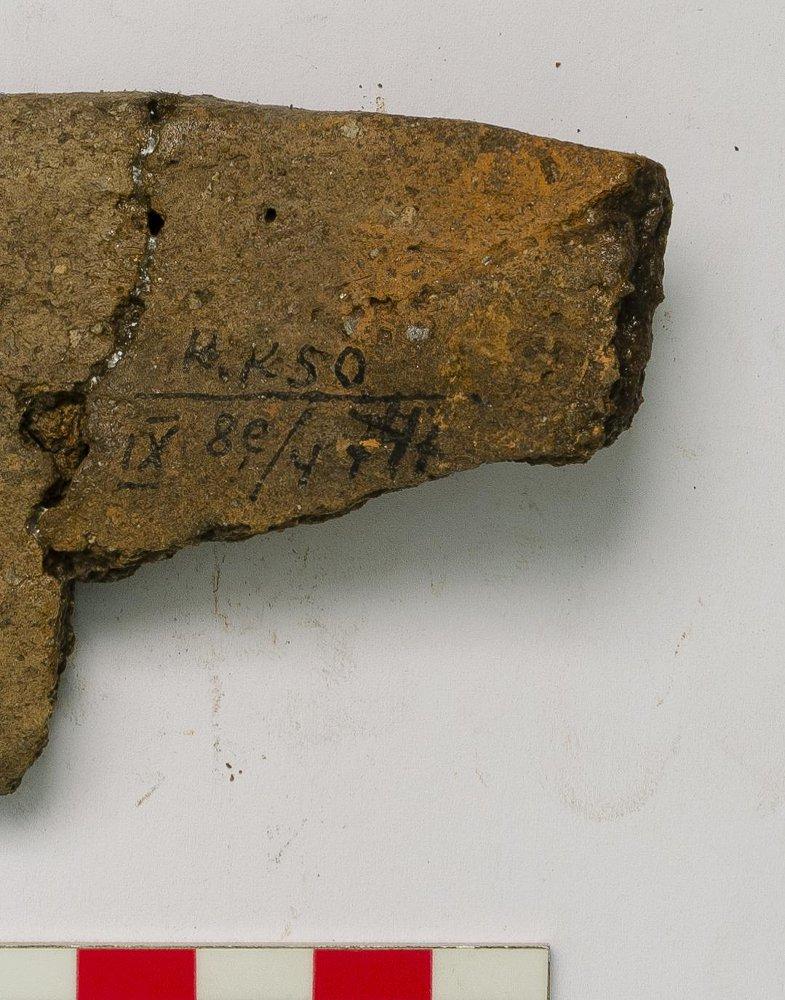 H.K50
IX 8e/4